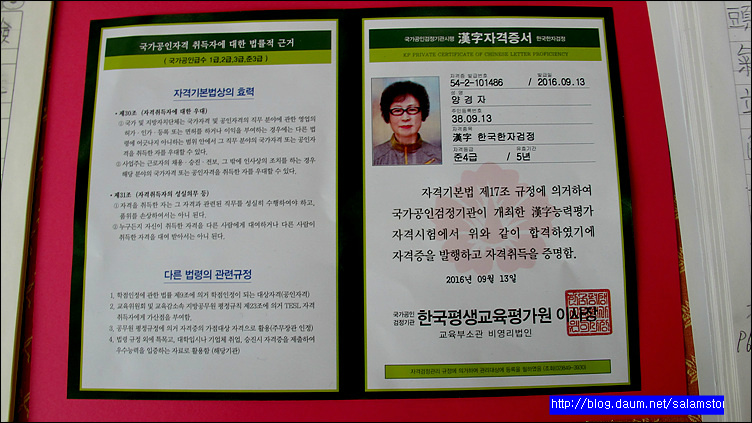 국가공인자격 취득자에 대한 법률적 근거
( 국가공인급수 1급,2급,3급,준3급 )
자격기본법상의 효력
• 제30조 (자격취득자에 대한 우대)
① 국가 및 지방자치단체는 국가자격 및 공인자격의 직무 분야에 관한 영업의
허가 · 인가 · 등록 또는 면허를 하거나 이익을 부여하는 경우에는 다른 법
령에 어긋나지 아니하는 범위 안에서 그 직무분야의 국가자격 또는 공인자
격을 취득한 자를 우대할 수 있다.
② 사업주는 근로자의 채용 · 승진 · 전보, 그 밖에 인사상의 조치를 하는 경우
해당 분야의 국가자격 또는 공인자격을 취득한 자를 우대할 수 있다.
• 제31조 (자격취득자의 성실의무 등)
① 자격을 취득한 자는 그 자격과 관련된 직무를 성실히 수행하여야 하고,
품위를 손상하여서는 아니 된다.
② 누구든지 자신이 취득한 자격을 다른 사람에게 대여하거나 다른 사람이
취득한 자격을 대여 받아서는 아니 된다.
다른 법령의 관련규정
1. 학점인정에 관한 법률 제9조에 의거 학점인정이 되는 대상자격(공인자격)
2. 교육위원회 및 교육감소속 지방공무원 평정규칙 제23조에 의거 TESL 자격
취득자에게 가산점을 부여함.
3. 공무원 평정규정에 의거 자격증의 가점대상 자격으로 활용(주무장관 인정)
4. 법령 규정 외에 특목고, 대학입시나 기업체 취업, 승진시 자격증을 제출하여
우수능력을 입증하는 자료로 활용함 (해당기관)
국가공인검정기관시행 漢字자격증서 한국한자검정
KP PRIVATE CERTIFICATE OF CHINESE LETTER PROFICIENCY
자격증 발급번호 발급일
54-2-101486 / 2016.09.13
성 명
양 경 자
주민등록번호
38.09.13
자격종목
漢字 한국한자검정
자격등급 유효기간
준4급 / 5년
자격기본법 제17조 규정에 의거하여
국가공인검정기관이 개최한 漢字능력평가
자격시험에서 위와 같이 합격하였기에
자격증을 발행하고 자격취득을 증명함.
2016년 09월 13일
국가공인
검정기관 한국평생교육평가원 이사장
교육부소관 비영리법인
http://blog.daum.net/salamstor